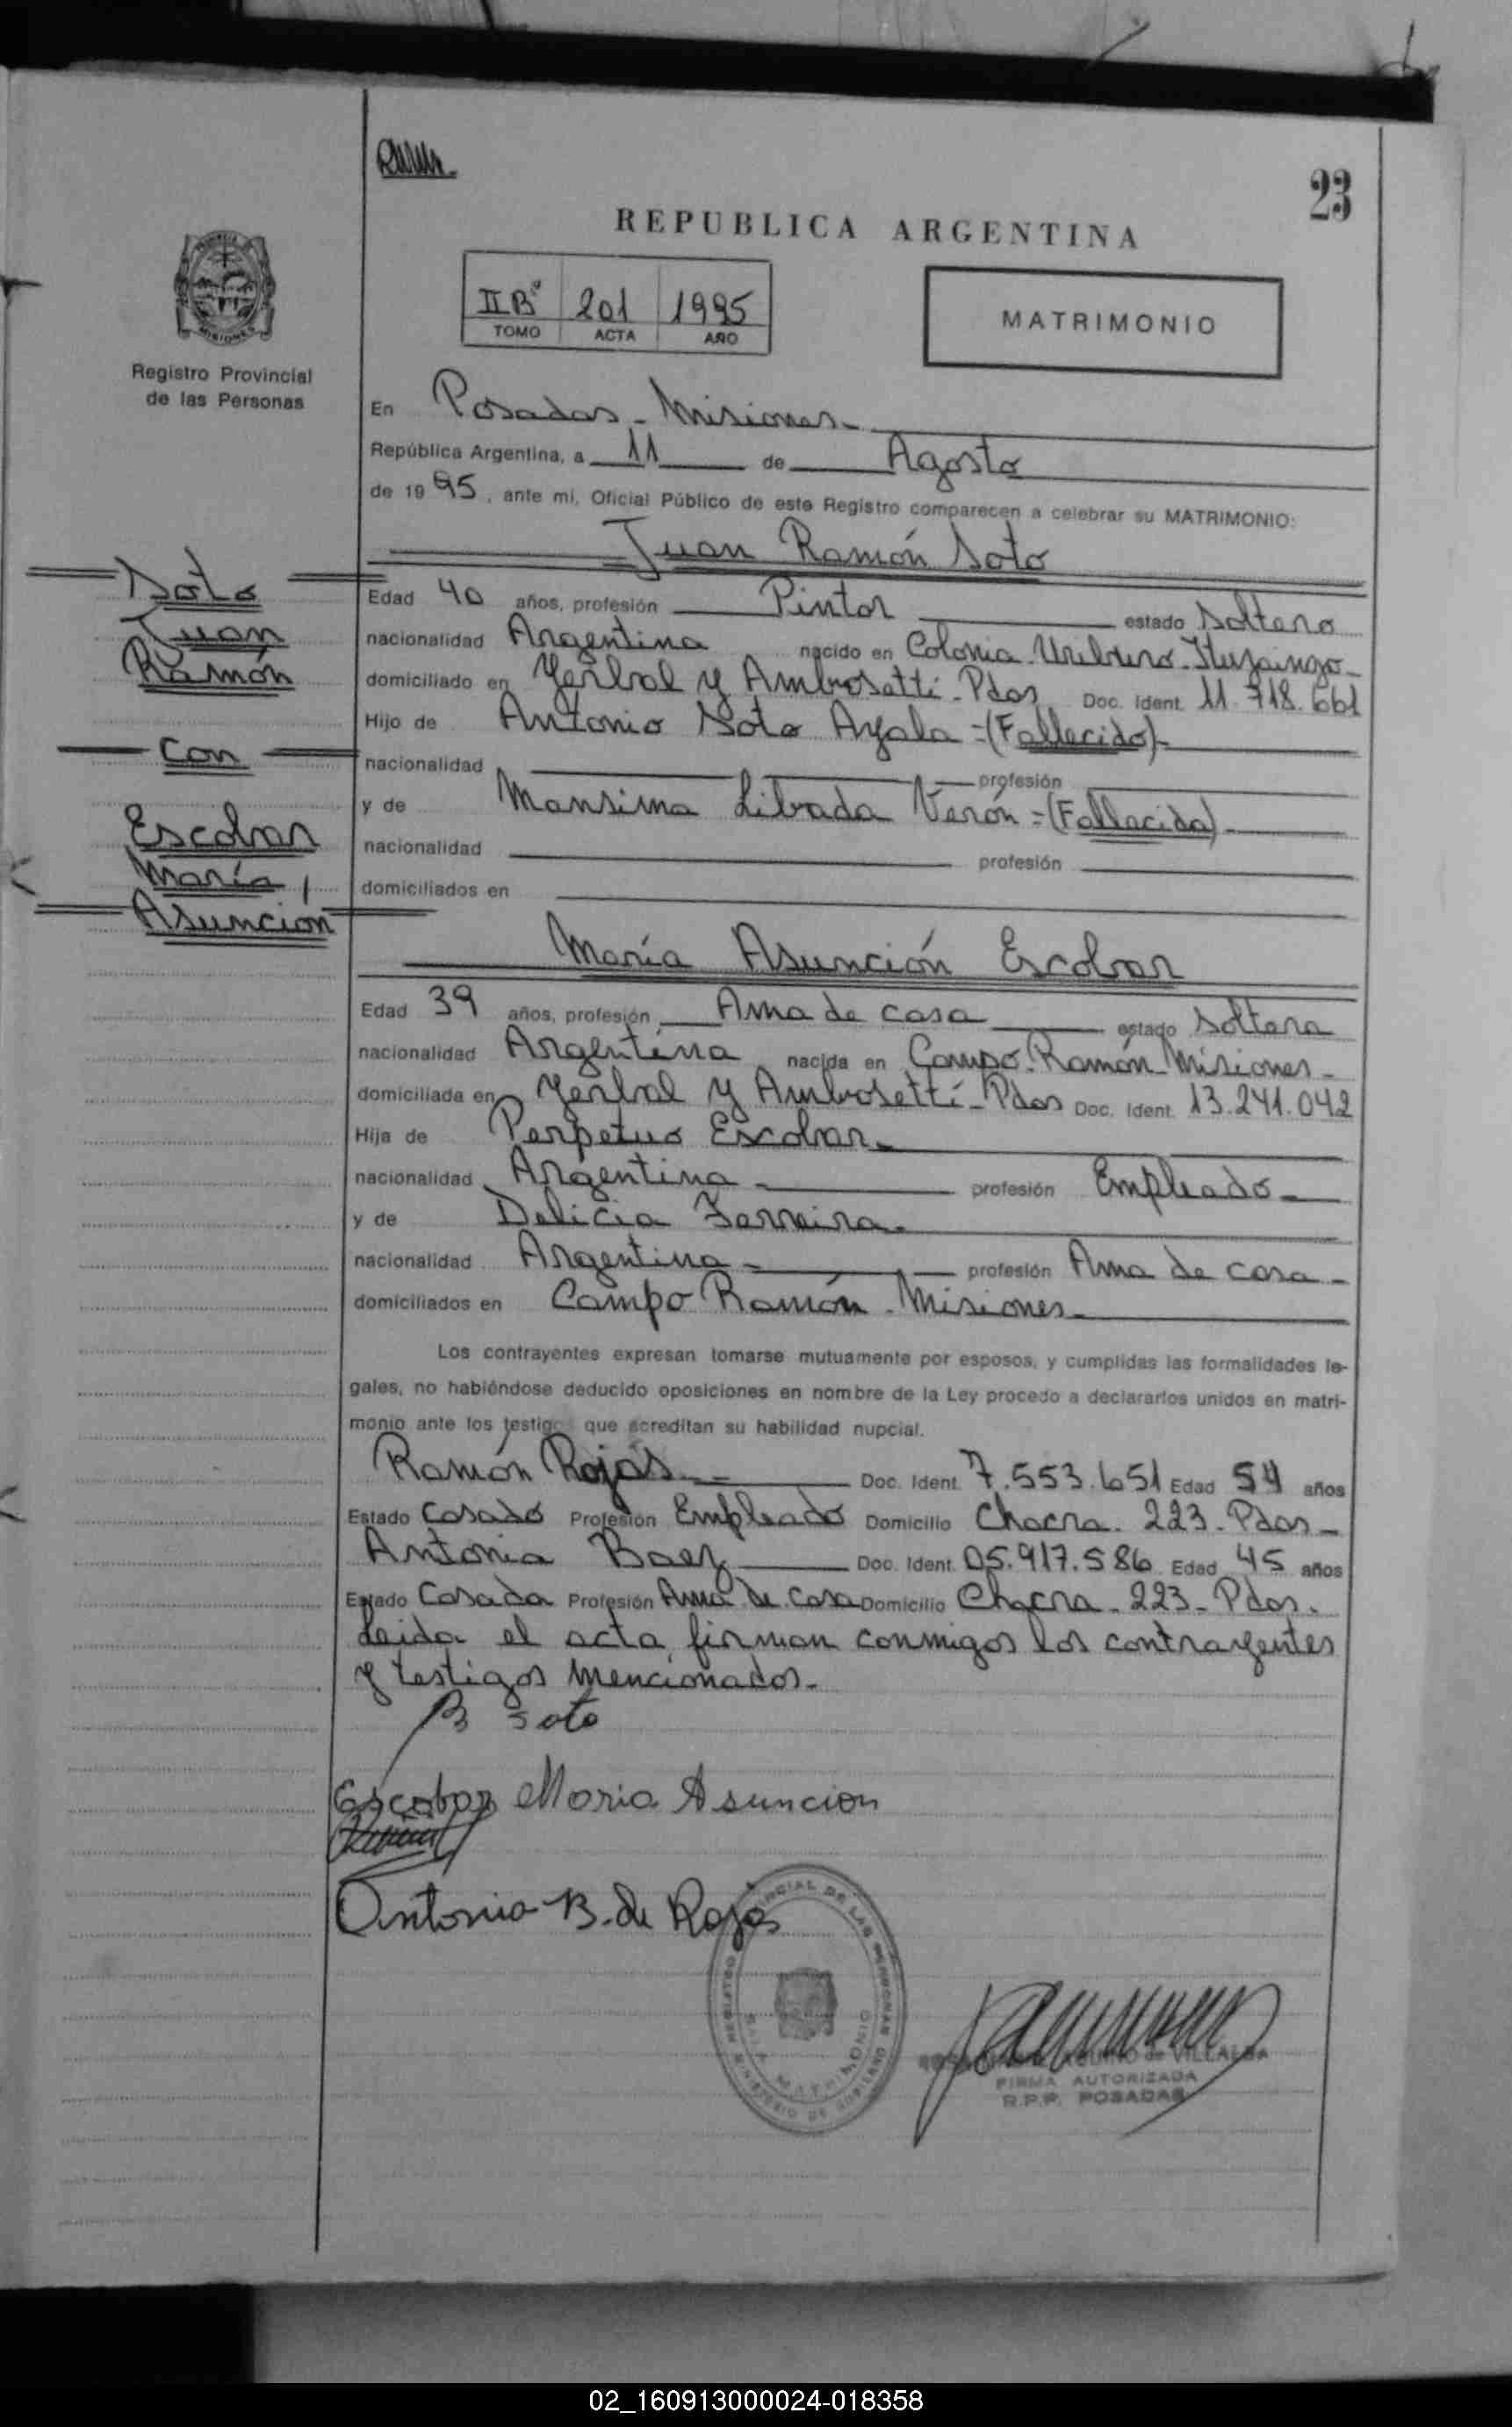 23
REPUBLICA ARGENTINA
IIBº 201 1995
TOMO ACTA AÑO
MATRIMONIO
Registro Provincial
de las Personas
En Posadas - Misiones -
República Argentina, a 11 de Agosto
de 1995, ante mi, Oficial Público de este Registro comparecen a celebrar su MATRIMONIO:
Juan Ramón Soto
Soto
Juan
Ramón
Con
Escobar
María
Asuncion
Edad 40 años, profesión Pintor estado Soltero
nacionalidad Argentina nacido en Colonia Uriburu - Ituzaingo -
domiciliado en Yerbal y Ambrosetti - Pdas Doc. Ident. 11.718.661
Hijo de Antonio Soto Ayala = (Fallecido) -
nacionalidad profesión
y de Mansima Librada Verón = (Fallecida) -
nacionalidad profesión
domiciliados en
María Asunción Escobar
Edad 39 años, profesión Ama de casa estado Soltera
nacionalidad Argentina nacida en Campo Ramón Misiones -
domiciliada en Yerbal y Ambrosetti - Pdas Doc. Ident. 13.241.042
Hija de Perpetuo Escobar -
nacionalidad Argentina - profesión Empleado -
y de Delicia Ferreira -
nacionalidad Argentina - profesión Ama de casa -
domiciliados en Campo Ramón - Misiones -
Los contrayentes expresan tomarse mutuamente por esposos, y cumplidas las formalidades le-
gales, no habiéndose deducido oposiciones en nombre de la Ley procedo a declararlos unidos en matri-
monio ante los testigos que acreditan su habilidad nupcial.
Ramón Rojas - Doc. Ident. 7.553.651 Edad 54 años
Estado Casado Profesión Empleado Domicilio Chacra - 223 - Pdas -
Antonia Baez Doc. Ident. 05.917.586 Edad 45 años
Estado Casada Profesión Ama de Casa Domicilio Chacra - 223 - Pdas.
Leida el acta firman conmigos los contrayentes
y testigos mencionados -
R Soto
Escobar Maria Asuncion
Antonia B. de Rojas
REGISTRO PROVINCIAL DE LAS PERSONAS
MINISTERIO DE GOBIERNO
SALA MATRIMONIO
de VILLALBA
FIRMA AUTORIZADA
R.P.P. POSADAS
02_160913000024-018358